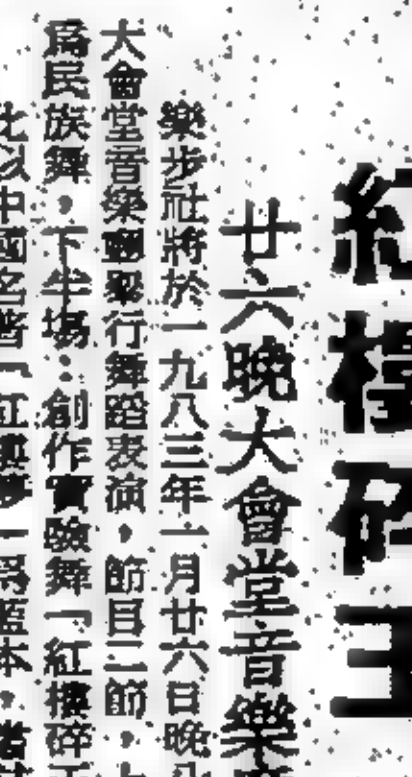 紅樓碎玉
廿六晚大會堂音樂
樂步社將於一九八三年一月廿六日晚八
大會堂音樂廳舉行舞蹈表演，節目二節，上
為民族舞，下半場：創作實驗舞「紅樓碎玉
比以中國名著「紅樓夢」為藍本，